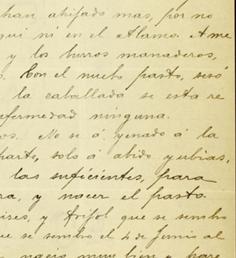 han atrifado mas, por no
qui ni en el Alamo. Ame
y los burros manaderos,
Con el nuebo pasto, sesó
la caballada se esta re
nfermedad ninguna.
os. No se á yenado á la
parte, solo á abido yubias,
las suficientes, para
ra, y nacer el pasto.
y trifol que se sembro
ue se sembro el 4 de Junio al
nacio muy bien y pare